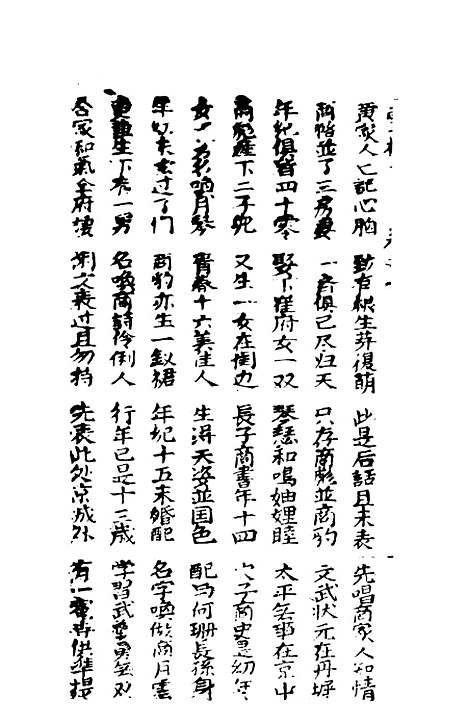 黄家人亡記心胸 有根生莽復萌 此是后話且未表 先唱商家人和情
商並了三房妻 一俱已尽归天 只存商彪並商豹 文武状元在丹墀
年纪俱皆四十零 娶下崔府女一双 琴瑟和鳴妯娌睦 太平無事在京中
商彪產下二子児 又生一女在闺边 長子商書年十四 次子商史是幼年
女一名喚月琴 青春十六美佳人 生得天姿並国色 配与何珊長孫身
年紀未过了门 商豹亦生一釵裙 年纪十五未婚配 名字喚做商月雲
生下有一男 名喚商詩伶俐人 行年已是十三歳 学習武藝勇無双
合家和氣全府 表过且勿 先表此处京城外 有一供準提